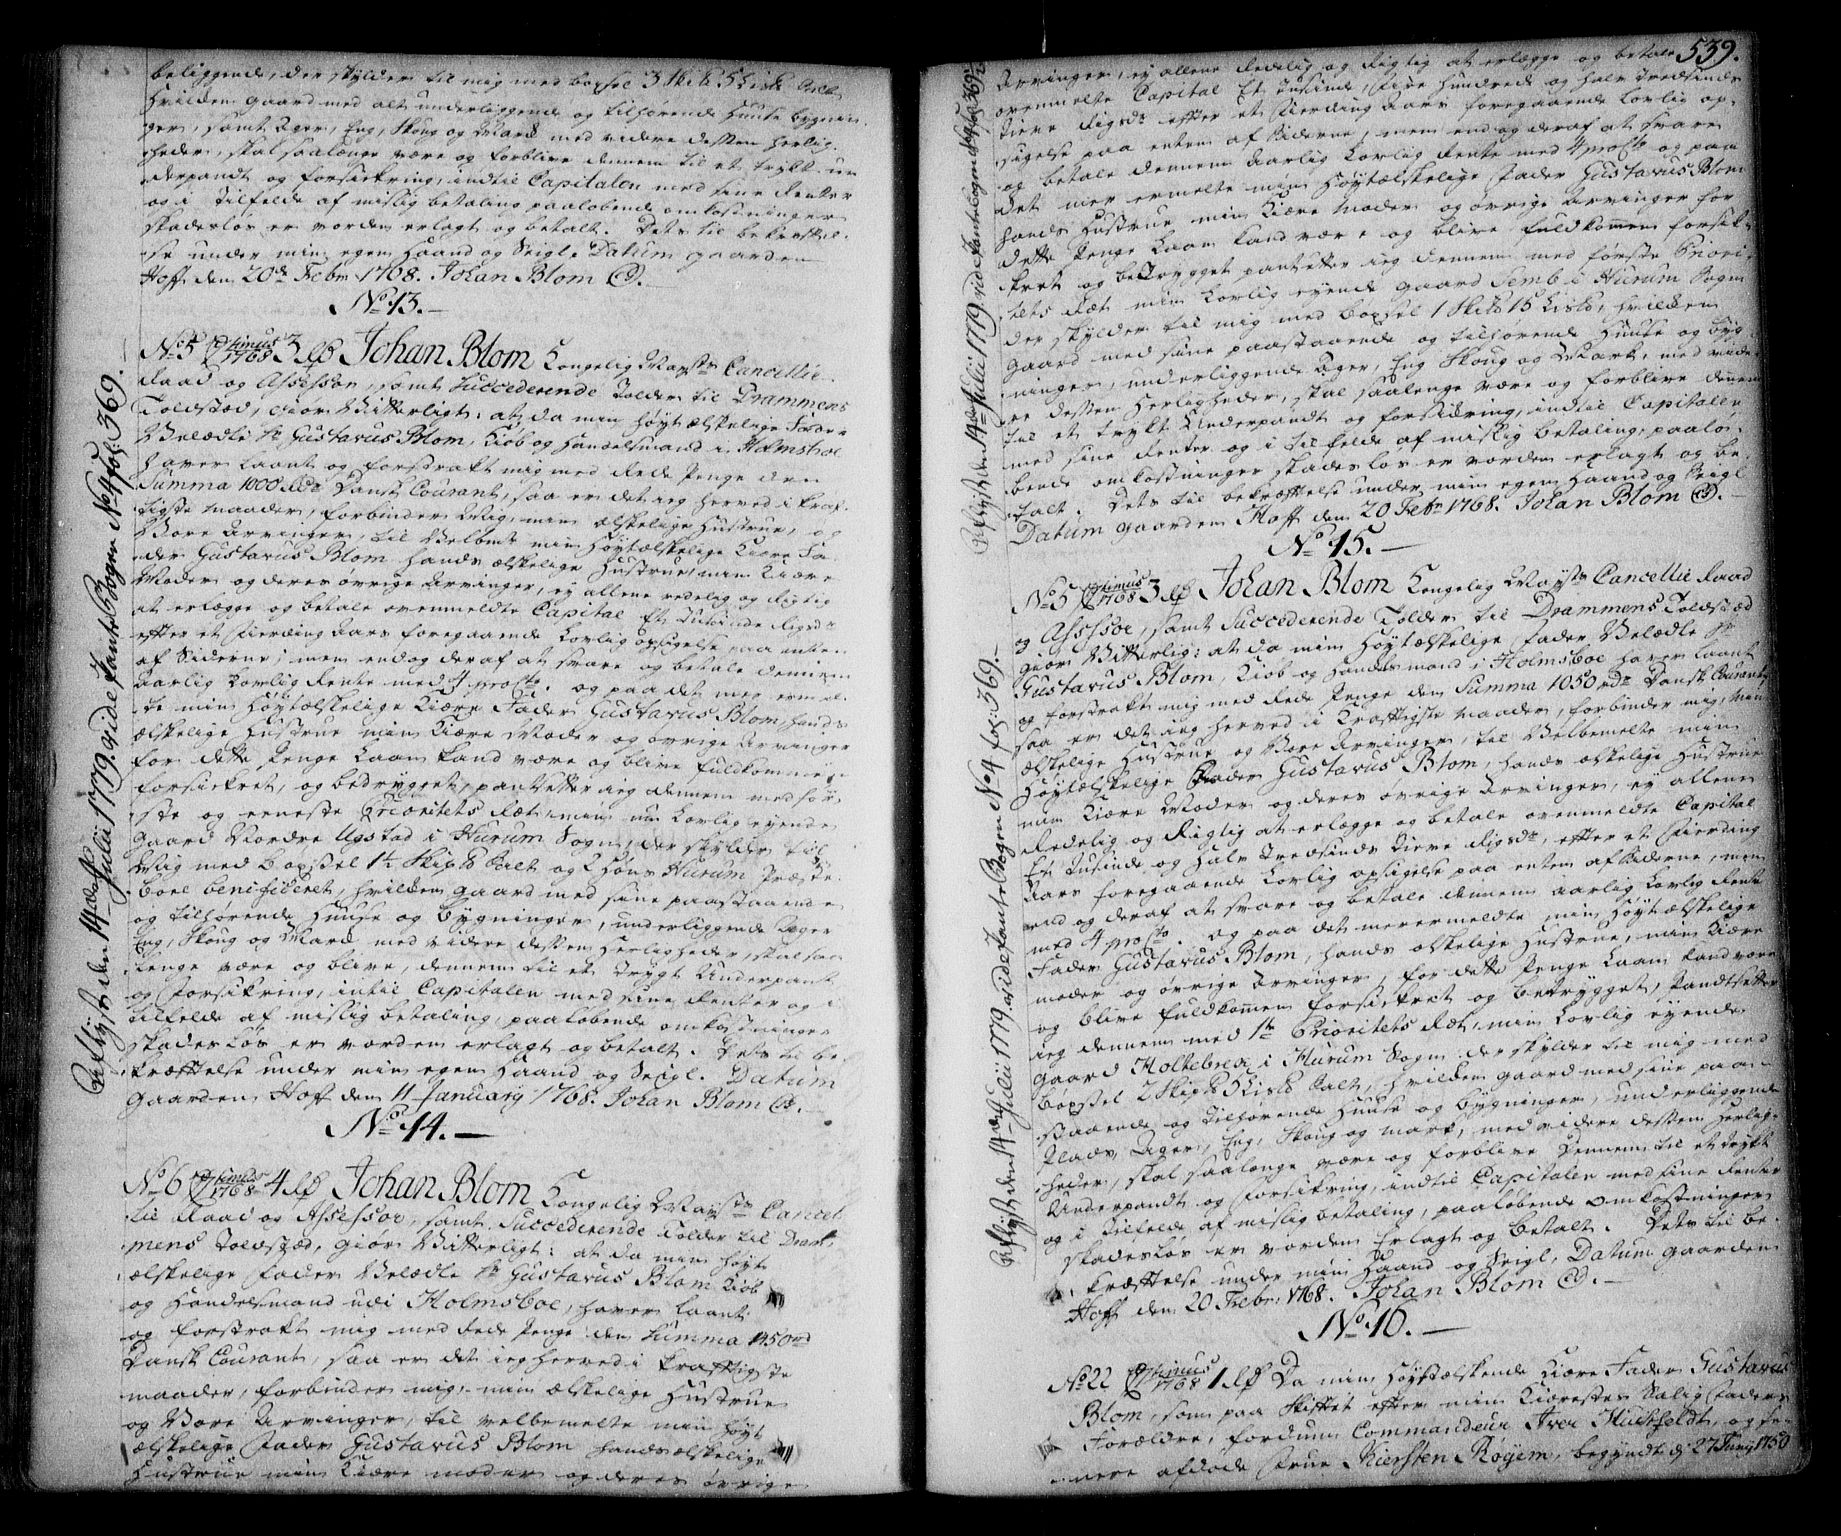 beliggende, der skylder til mig med bøxsel 3 Skt 5 Lisb
hvilken gaard med alt underliggende og tilhørende Huuse bygnin-
ger, samt Ager, Eng, Skoug og Mark med videre dessen herlig-
heder, skal saalænge være og forblive dennem til et trykt un-
derpandt og forsickring, indtil Capitalen med sine Renter
og i tilfelde af mislig betaling paaløbende omkostninger
skadesløs er vorden erlagt og betalt. Dets til bekræftel-
se under min egen Haand og Seigl. Datum gaarden
Hoff den 20de Febr. 1768. Johan Blom
No. 13.
No. 5 1768 3 Johan Blom Kongelig Mayts Cancellie
Raad og Assessor, samt Succederende Tolder til Drammens
Toldsted, Giør Vitterligt: at da min høyt ælskelige Fader
Velædle Sr Gustavus Blom, Kiøb og Handelsmand i Holmsboe
haver laant og forstrakt mig med Rede Penge den
Summa 1000 Rdr Dansk Courant, saa er det ieg herved i kraf-
tigste maader, forbinder Mig, min ælskelige Hustrue, og
Vore Arvinger, til Velbemte min Høytælskelige Kiære Fa-
der Gustavus Blom hands ælskelige Hustrue, min Kiære
Moder og deres øvrige Arvinger, ey allene redelig og Rigtig
at erlægge og betale ovenmeldte Capital Et Tusinde Rigsdr
efter et Fierding Aars foregaaende Lovlig opsigelse paa enten
af Siderne; men endog deraf at svare og betale dennem
Aarlig Lovlig Rente med 4 procto. og paa det meg ermel-
te min Høytælskelige Kiære Fader Gustavus Blom, hands
ælskelige Hustrue min Kiære Moder og øvrige Arvinger
for dette Penge Laan kand være og blive fuldkommen
forsickret, og bedrygget, pantsetter ieg dennem med før-
ste og eeneste Prioritets Ret, min Lovlig eyende
Gaard Nordre Ugstad i Hurum Sogn, der skylder til
Mig med Bøxsel 1½ Skipb Salt og 2 Høns Hurum Præste-
boel beneficeret, hvilken gaard med sine paastaaende
og tilhørende Huuse og Bygninger, underliggende Ager
Eng, Skoug og Mark med videre dessen Herligheder, skal saa
lenge være og blive, dennem til et Trygt Underpant
og Forsikring, intil Capitalen med sine Renter og i
tilfelde af mislig betaling, paaløbende omkostninger
skadesløs er vorden erlagt og betalt. Dets til be-
kræftelse under min egen Haand og Seigl. Datum
Gaarden Hoff den 11 January 1768. Johan Blom
No. 14.
No 6 1768 4 Johan Blom Kongelig Mayts Cancel-
lie Raad og Assessor, samt Succederende Tolder til Dram-
mens Toldsted, giør Vitterligt: at da min høyt
ælskelige Fader Velædle Sr Gustavus Blom Kiøb
og Handelsmand udi Holmsboe, haver laant
og forstrakt mig med Rede Penge den Summa 1450 rd
Dansk Courant, saa er det ieg herved i kraftigste
maader, forbinder mig, min ælskelige Hustrue
og Vore Arvinger, til velbemelte min høyt
ælskelige Fader Gustavus Blom hands ælskelige
Hustrue min Kiære moder og deres øvrige
Aflyst den 14de Julii 1779. vide Pante Bogen No 4 fol: 369.
539.
Arvinger, ey allene Redelig og Rigtig at erlægge og betale
ovenmelte Capital Et Tusinde, Fire Hundrede og halv Tredsinds-
tieve Rigsdr efter et Fierding Aars foregaaende Lovlig op-
sigelse paa enten af Siderne, men endog deraf at svare
og betale dennem Aarlig Lovlig Rente med 4 procto og paa
det mer ermelte min Høytælskelige Fader Gustavus Blom
hands Hustrue min Kiære Moder og øvrige Arvinger for
dette Penge Laan kand være og blive fuldkommen forsik-
kret og betrygget pantsetter ieg dennem med første Priori-
tets Ret min Lovlig eyende gaard Semb i Hurum Sogn
der skylder til mig med bøxsel 1 Skilb 15 Lislb, hvilken
gaard med sine paastaaende og tilhørende Huuse og Byg-
ninger, underliggende Ager, Eng Skoug og Mark, med vide-
re dessen Herligheder, skal saalenge være og forblive dennem
til et trykt Underpandt og forsickring, indtil Capitalen
med sine Renter og i tilfelde af mislig betaling, paalø-
bende omkostninger skadesløs er vorden erlagt og be-
talt. Dets til bekræftelse under min egen Haand og Seigl
Datum gaarden Hoff den 20 Febr 1768. Johan Blom
No. 15.
No. 5 1768 3 Johan Blom Kongelig Mayts Cancellie Raad
og Assessor, samt Succederende Tolder til Drammens Toldsted
giør Vitterlig: at da min Høytælskelige Fader Velædle Sr
Gustavus Blom, Kiøb og Handelsmand i Holmsboe haver laant
og forstrakt mig med Rede Penge den Summa 1050 rdr Dansk Courant,
saa er det ieg herved i kraftigste Maader, forbinder mig, min
ælskelige Hustrue og Vore Arvinger, til Velbemelte min
Høytælskelige Fader Gustavus Blom, hands ælskelige Hustrue
min Kiære Moder og deres øvrige Arvinger, ey allene
Redelig og Rigtig at erlægge og betale ovenmeldte Capital
Et Tusinde og Halv Tredsinds tieve Rigsdr, efter et Fierding
Aars foregaaende Lovlig opsigelse paa enten af Siderne, men
end og deraf at svare og betale dennem aarlig Lovlig Rente
med 4 procto. og paa det merermeldte min Høyt ælskelige
Fader Gustavus Blom, hands ælskelige Hustrue, min Kiære
moder og øvrige Arvinger, for dette Penge Laan kand være
og blive fuldkommen forsickret og betrygget, Pandtsetter
ieg dennem med 1te Prioritets Ret, min Lovlig eyende
gaard Holtebrek i Hurum Sogn der skylder til mig med
bøxsel 2 Skipb 5 Lislb Salt, hvilken gaard med sine paa-
staaende og tilhørende Huuse og Bygninger, underliggende
Plads, Ager, Eng, Skoug og mark, med videre dessen Herlig-
heder, skal saalenge være og forblive Dennem til et trykt
Underpandt og forsickring, indtil Capitalen med sine Renter
og i tilfelde af mislig betaling, paaløbende omkostninger
skadesløs er vorden Erlagt og betalt. Dets til be-
kræftelse under min Haand og Seigl, Datum gaarden
Hoff den 20 Febr. 1768. Johan Blom
No. 16.
No. 22 1768 1 Da min Høystælskende Kiære Fader Gustavus
Blom, som paa Skiftet efter min Kiærestes Salig Fader
Forældre, fordum Commandeur Iver Huitfeldt, og se-
nere afdøde Frue Kiersten Røyem, begyndt d: 27 Junij 1750
Aflyst den 14de Julii 1779. vide Pante Bogen No 4 fol: 369.
Aflyst den 14de Julii 1779. vide Pante Bogen No 4 fol: 369.